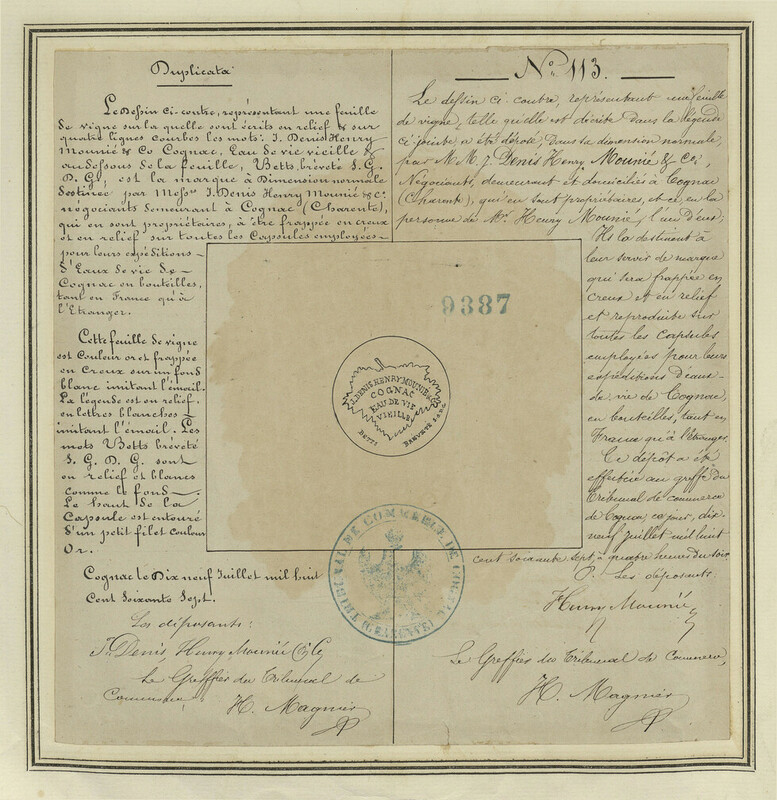 Duplicata
Le Dessin ci-contre, représentant une feuille
de vigne sur la quelle sont écrits en relief & sur
quatre lignes courbes les mots: J. Denis Henry
Mounié & Co Cognac, Eau de vie vieille &
au dessous de la feuille, Betts bréveté S. G.
D. G, est la marque à Dimension normale
destinée par Messrs J. Denis Henry Mounié & Co
négociants demeurant à Cognac (Charente),
qui en sont propriétaires, à être frappée en creux
et en relief sur toutes les Capsules employées
pour leurs expéditions
d'Eaux de vie de
Cognac en bouteilles,
tant en France qu'à
l'Etranger.
Cette feuille de vigne
est Couleur or et frappée
en Creux sur un fond
blanc imitant l'émail.
La légende est en relief
en lettres blanches
imitant l'émail. Les
mots Betts bréveté
S. G. D. G. sont
en relief et blancs
comme le fond.
Le haut de la
Capsule est entouré
d'un petit filet couleur
Or.
Cognac le Dix neuf Juillet mil huit
Cent Soixante Sept.
Les déposants:
J. Denis Henry Mounié & Co
Le Greffier du Tribunal de
Commerce
H. Magnier
No. 113.
Le dessin ci-contre, représentant une feuille
de vigne, telle qu'elle est décrite dans la légende
ci jointe a été déposé, dans sa dimension normale,
par M M. J. Denis Henry Mounié & Cie,
Négociants, demeurant et domiciliés à Cognac
(Charente), qui en sont propriétaires, et ce, en la
personne de Mr. Henry Mounié, l'un d'eux;
Ils la destinent à
leur servir de marque
qui sera frappée en
creux et en relief
et reproduite sur
toutes les capsules
employées pour leurs
expéditions d'eaux
de vie de Cognac,
en bouteilles, tant en
France qu'à l'étranger.
Ce dépôt a été
effectué au greffe du
Tribunal de commerce
de Cognac ce jour, dix
neuf Juillet mil huit
cent soixante sept, à quatre heures du soir.
P. Les déposants.
Henry Mounié
Le Greffier du Tribunal de Commerce,
H. Magnier
9387
J. DENIS HENRY MOUNIÉ & Co
COGNAC
EAU DE VIE
VIEILLE
BETTS BREVETÉ S.G.D.G.
TRIBUNAL DE COMMERCE DE COGNAC
(CHARENTE)